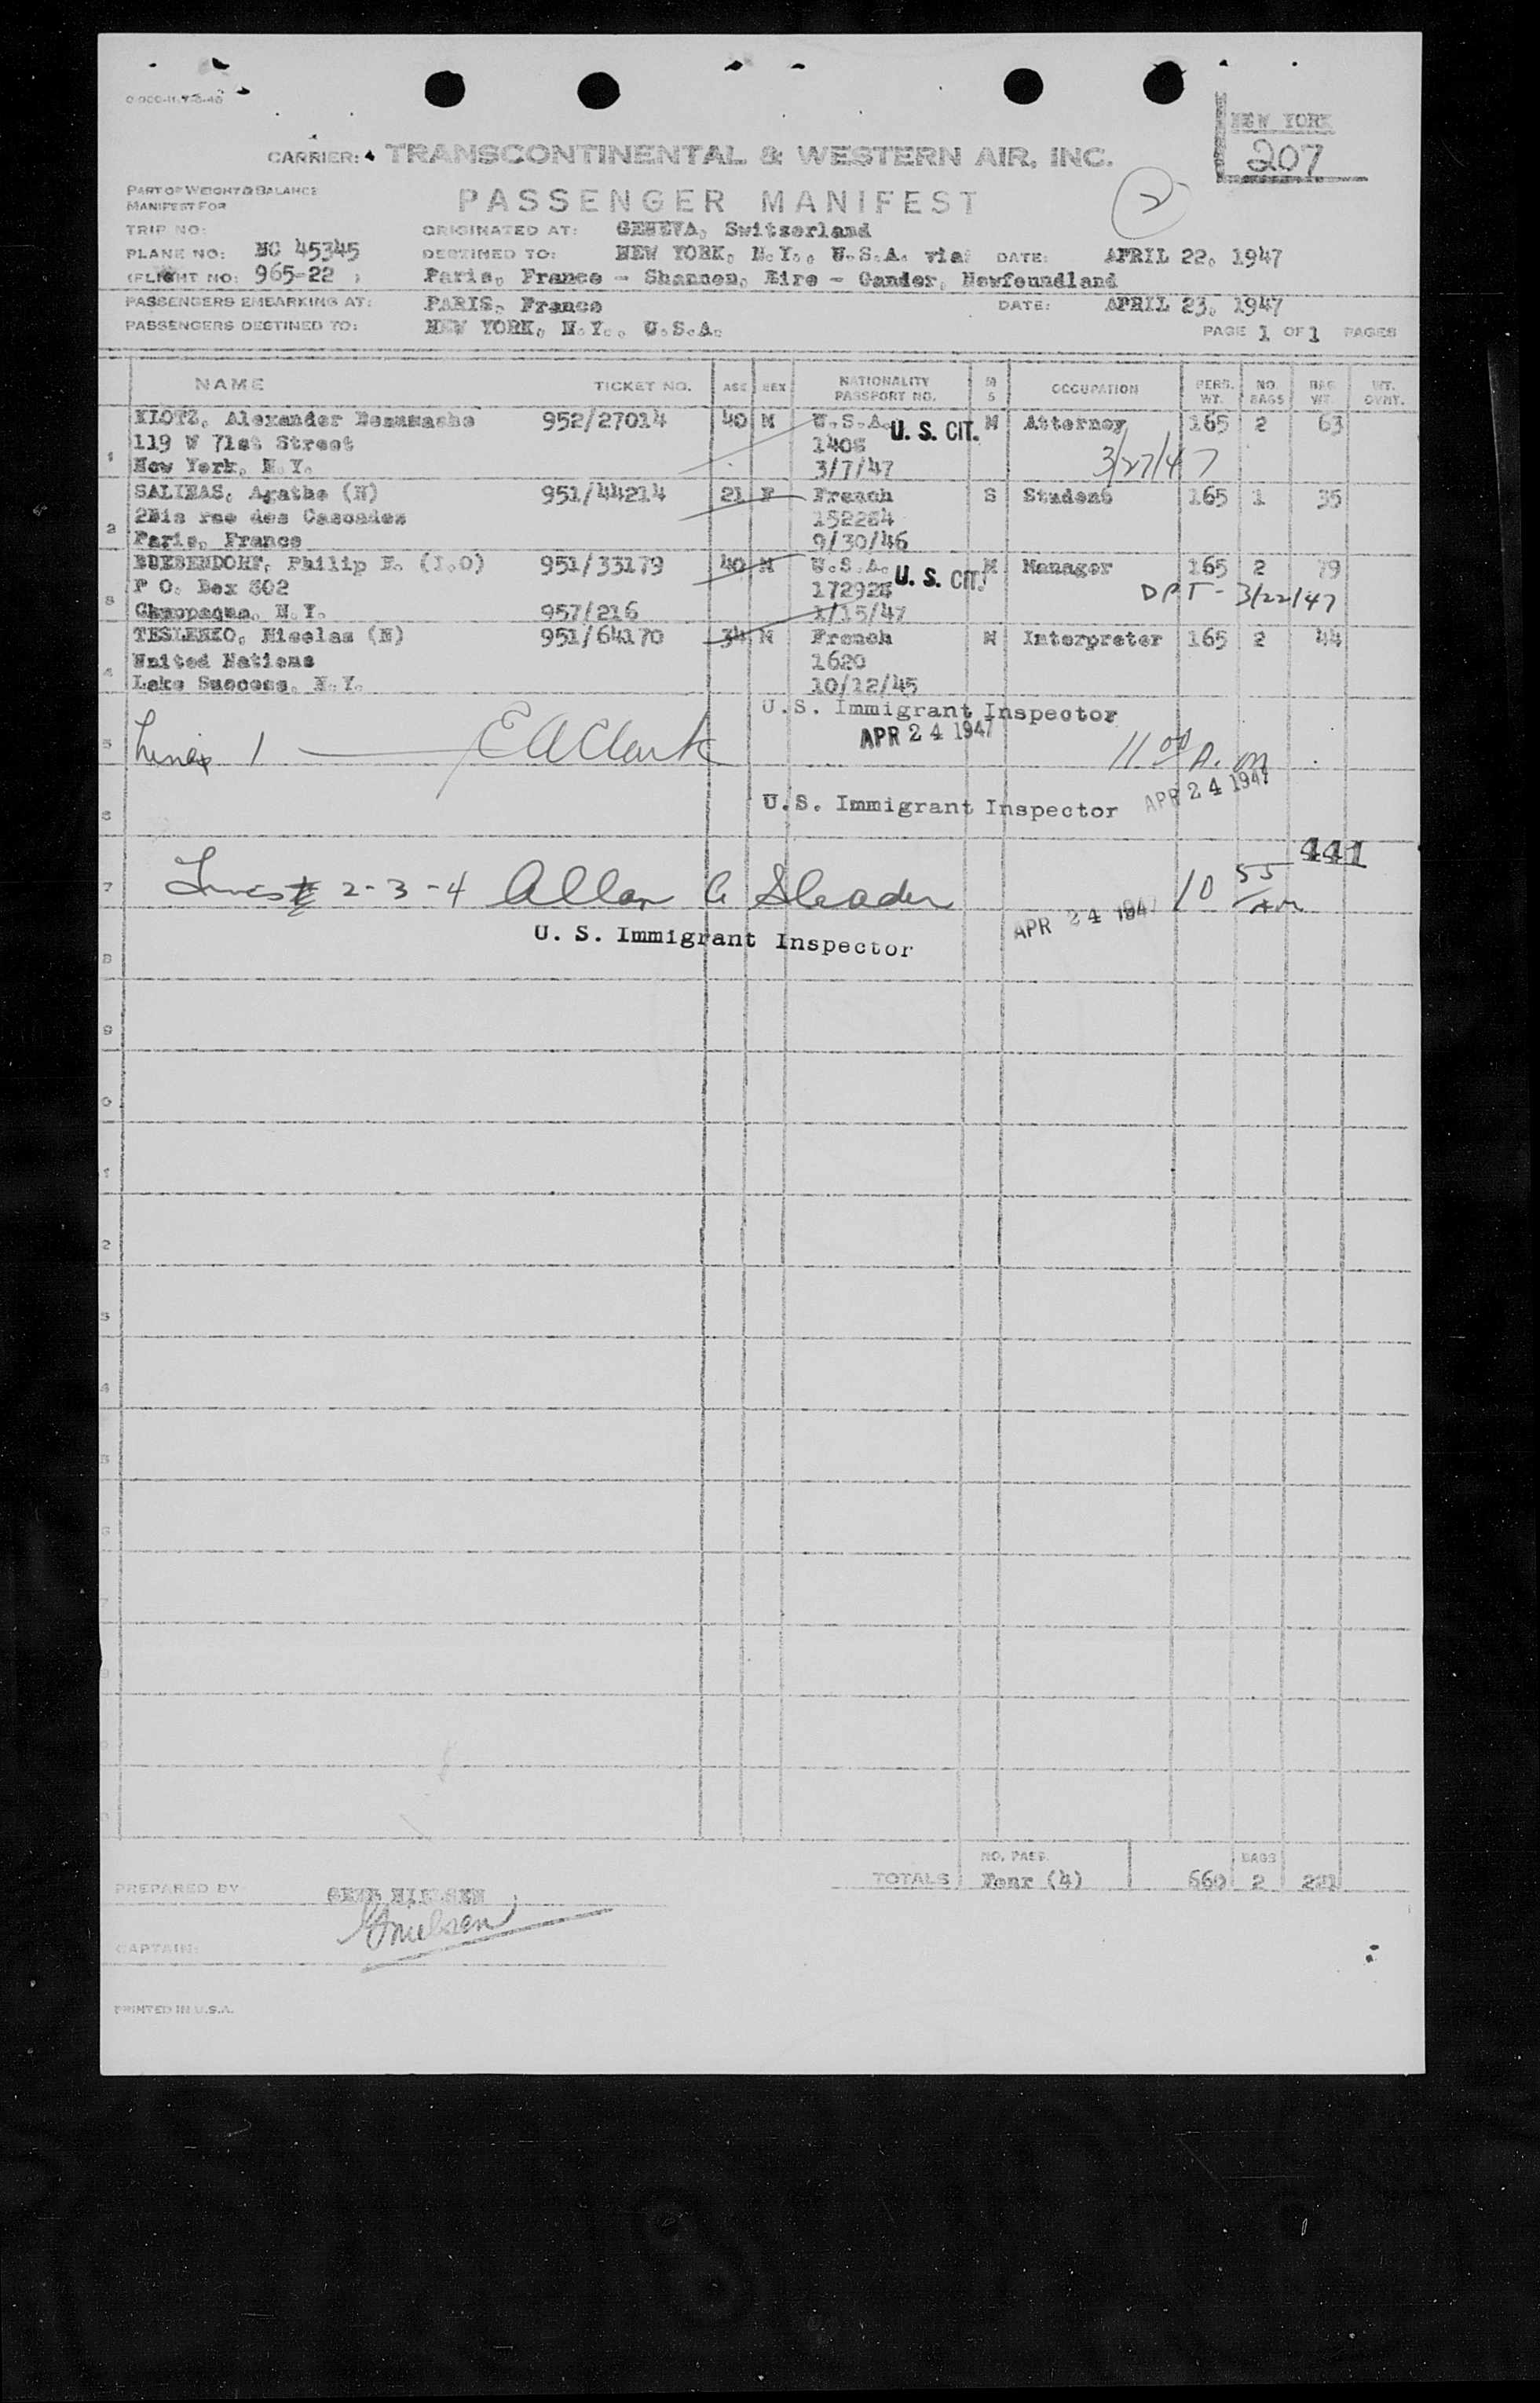 NEW YORK
207
CARRIER: TRANSCONTINENTAL & WESTERN AIR, INC.
PART OF WEIGHT & BALANCE
MANIFEST FOR
PASSENGER MANIFEST
2
TRIP NO:
ORIGINATED AT: GENEVA, Switzerland
PLANE NO: NC 45345 DESTINED TO: NEW YORK, N.Y., U.S.A. via: DATE: APRIL 22, 1947
(FLIGHT NO: 965-22 ) Paris, France - Shannon, Eire - Gander, Newfoundland
PASSENGERS EMBARKING AT: PARIS, France DATE: APRIL 23, 1947
PASSENGERS DESTINED TO: NEW YORK, N.Y., U.S.A. PAGE 1 OF 1 PAGES
NAME TICKET NO. AGE SEX NATIONALITY PASSPORT NO. M S OCCUPATION PERS. WT. NO. BAGS BAG. WT. WT. OVHT.
1 KLOTZ, Alexander 952/27014 40 M U.S.A. U. S. CIT. M Attorney 165 2 63
119 W 71st Street 1408
New York, N.Y. 3/7/47 3/27/47
2 SALINAS, Agathe (N) 951/44214 21 F French S Student 165 1 35
2Bis rue des Cascades 152284
Paris, France 9/30/46
3 Philip E. (I.O) 951/33179 40 M U.S.A. U. S. CIT. M Manager 165 2 79
P O. Box 802 172928 DPT - 3/22/47
Chappaqua, N.Y. 957/216 1/15/47
4 TESLENKO, Nicolas (N) 951/64170 34 M French M Interpreter 165 2 44
United Nations 1620
Lake Success, N.Y. 10/12/45
U.S. Immigrant Inspector
5 Line 1 E A Clark APR 24 1947 11 00 A. M
6 U.S. Immigrant Inspector APR 24 1947
441
7 Lines 2-3-4 Allan C APR 24 1947 10 55 am
U. S. Immigrant Inspector
8
9
0
1
2
3
4
5
6
NO. PASS. BAGS
TOTALS Four (4) 660 2 221
PREPARED BY: GENE NIELSEN
GNielsen
CAPTAIN:
PRINTED IN U.S.A.